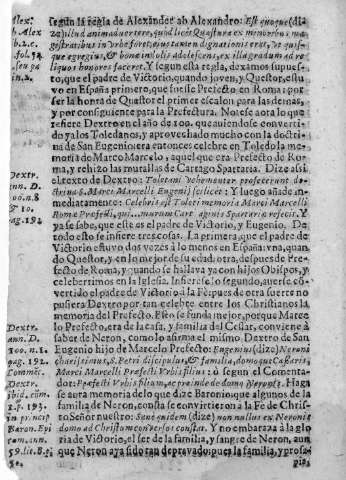 según la regla de Alexandro ab Alexandro: Est quoque (di
ze) illud animaduertere, quod licèt Quæstura ex minoribus ma
gistratibus in vrbe foret,
que egregius, & bonæ indolis adolescens, ex illa gradum ad re
liquos honores faceret. Y segun esta regla, dexamos supues-
to, que el padre de Victorio, quando joven, y Questor, estu
vo en España primero, que fuesse Prefecto en Roma; por
ser la honra de Quæstor el primer escalon para las demas,
y por consiguiente para la Prefectura. Noticioso desto lo que
refiere Dextro en el año de 100. que auiendose conuerti-
do ya los Toledanos, y aprouechado mucho con la doctri-
na de San Eugenio era entonces celebre en Toledo la me-
moria de Marco Marcelo, aquel que era Prefecto de Ro-
ma, y rehizo las murallas de Cartago Spartaria. Dize assi
el texto de Dextro: Toletani vehementer profecerunt do-
ctrina S. Marci Marcelli Eugenij scilicet: Y luego añade in-
mediatamente: Celebris est Toleti memoria Marci Marcelli
Romæ Præfecti, qui... murum Cartaginis Spartariæ refecit. Y
ya se sabe, que este es el padre de Victorio, y Eugenio. De
todo esto se infiere tres cosas. La primera, que el padre de
Victorio estuvo dos vezes à lo menos en España: vna, quan-
do Questor, y en lo mejor de su edad: otra, despues de Pre-
fecto de Roma, y quando se hallava ya con hijos Obispos, y
celeberrimos en la Iglesia. Infierese lo segundo, auerse co-
vertido el padre de Victorio à la Fè: pues de otra suerte no
pusiera Dextro por tan celebre entre los Christianos la
memoria del Prefecto. Esto se funda mejor, porque Marce
lo Prefecto, era de la casa, y familia del Cesar, conviene à
saber de Neron, como lo afirma el mismo Dextro de San
Eugenio hijo de Marcelo Prefecto: Eugenius (dize) Neroni
charissimus, S. Petri discipulus, & familia, domoque Cæsaris,
Marci Marcelli Præfecti Vrbis filius: ò segun el Comenta-
dor: Præfecti Vrbis filium, ac proinde de domo Neronis. Haga
se aora memoria de lo que dize Baronio, que algunos de la
familia de Neron, consta se convirtieron à la Fè de Chris-
to Señor nuestro: Sanè quidem (dize) non nullos ex Neronis
domo ad Christum conversos constat. Y no embaraza à la glo
ria de Victorio, el ser de la familia, y sangre de Neron, aun
que Neron aya sido tan depravado: pues la familia, y prosa-
pia,
Alex.
b. Alex
b. 2. c.
fol. 92.
in. 2.
Dextr.
ann. D.
100. n. 8
& 10.
pag. 192.
Dextr.
ann. D.
100. n. 1.
pag. 192.
Commẽt.
Dextr.
ibid. cõm.
1. f. 193.
in princip
Baron. Epi
tom. ann.
59. lit. B. p.
50.